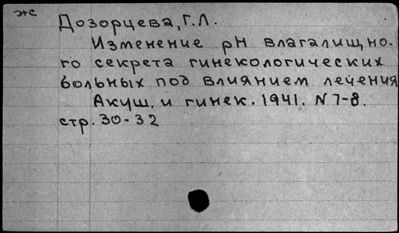 жс
Дозорцева, Г.Л.
Изменение рН влагалищно-
го секрета гинекологических
больных под влиянием лечения
Акуш. и гинек. 1941. N 7-8.
стр. 30-32